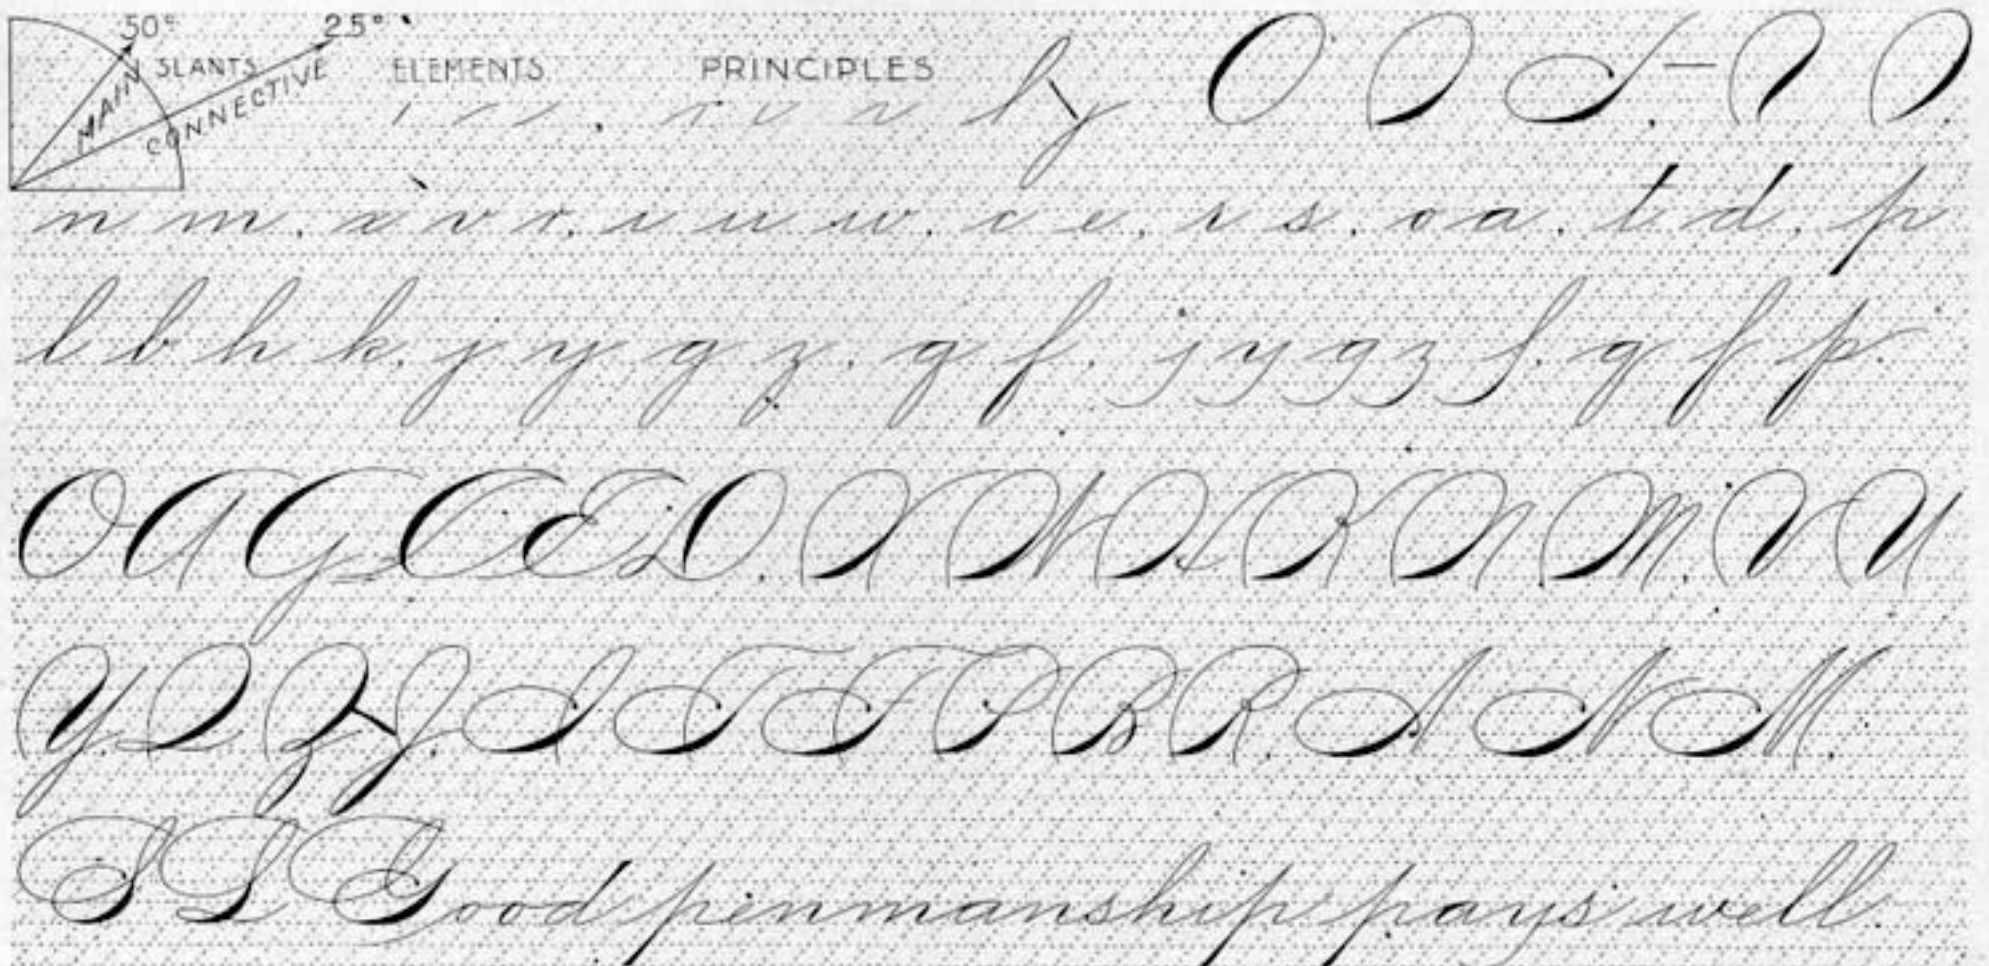 50° 25°
MAIN SLANTS CONNECTIVE ELEMENTS PRINCIPLES
n m, x v r, i u w, c e, r s, o a, t d, p
l b h k, j y g z, q f, j y g z f, q f p
O A G C E D, X W X K N M, V U
Y Q Z J, I T F P B R, A N M,
S L Good penmanship pays well.